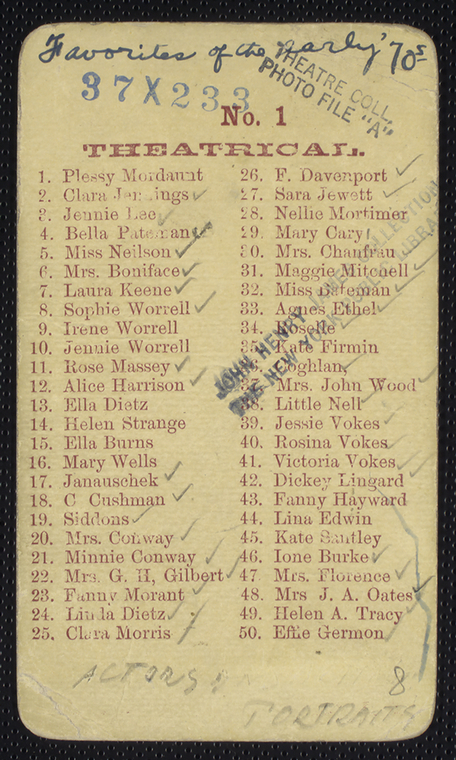 Favorites of the Early '70s
37X233
THEATRE COLL.
PHOTO FILE "A"
No. 1
THEATRICAL.
1. Plessy Mordaunt
2. Clara Jennings
3. Jennie Lee
4. Bella Pateman
5. Miss Neilson
6. Mrs. Boniface
7. Laura Keene
8. Sophie Worrell
9. Irene Worrell
10. Jennie Worrell
11. Rose Massey
12. Alice Harrison
13. Ella Dietz
14. Helen Strange
15. Ella Burns
16. Mary Wells
17. Janauschek
18. C. Cushman
19. Siddons
20. Mrs. Conway
21. Minnie Conway
22. Mrs. G. H, Gilbert
23. Fanny Morant
24. Linda Dietz
25. Clara Morris
26. F. Davenport
27. Sara Jewett
28. Nellie Mortimer
29. Mary Cary
30. Mrs. Chanfrau
31. Maggie Mitchell
32. Miss Bateman
33. Agnes Ethel
34. Roselle
35. Kate Firmin
36. Coghlan,
37. Mrs. John Wood
38. Little Nell
39. Jessie Vokes
40. Rosina Vokes
41. Victoria Vokes
42. Dickey Lingard
43. Fanny Hayward
44. Lina Edwin
45. Kate Santley
46. Ione Burke
47. Mrs. Florence
48. Mrs J. A. Oates
49. Helen A. Tracy
50. Effie Germon
JOHN HENRY COLLECTION
THE NEW YORK LIBRARY
ACTORS:
8
PORTRAITS